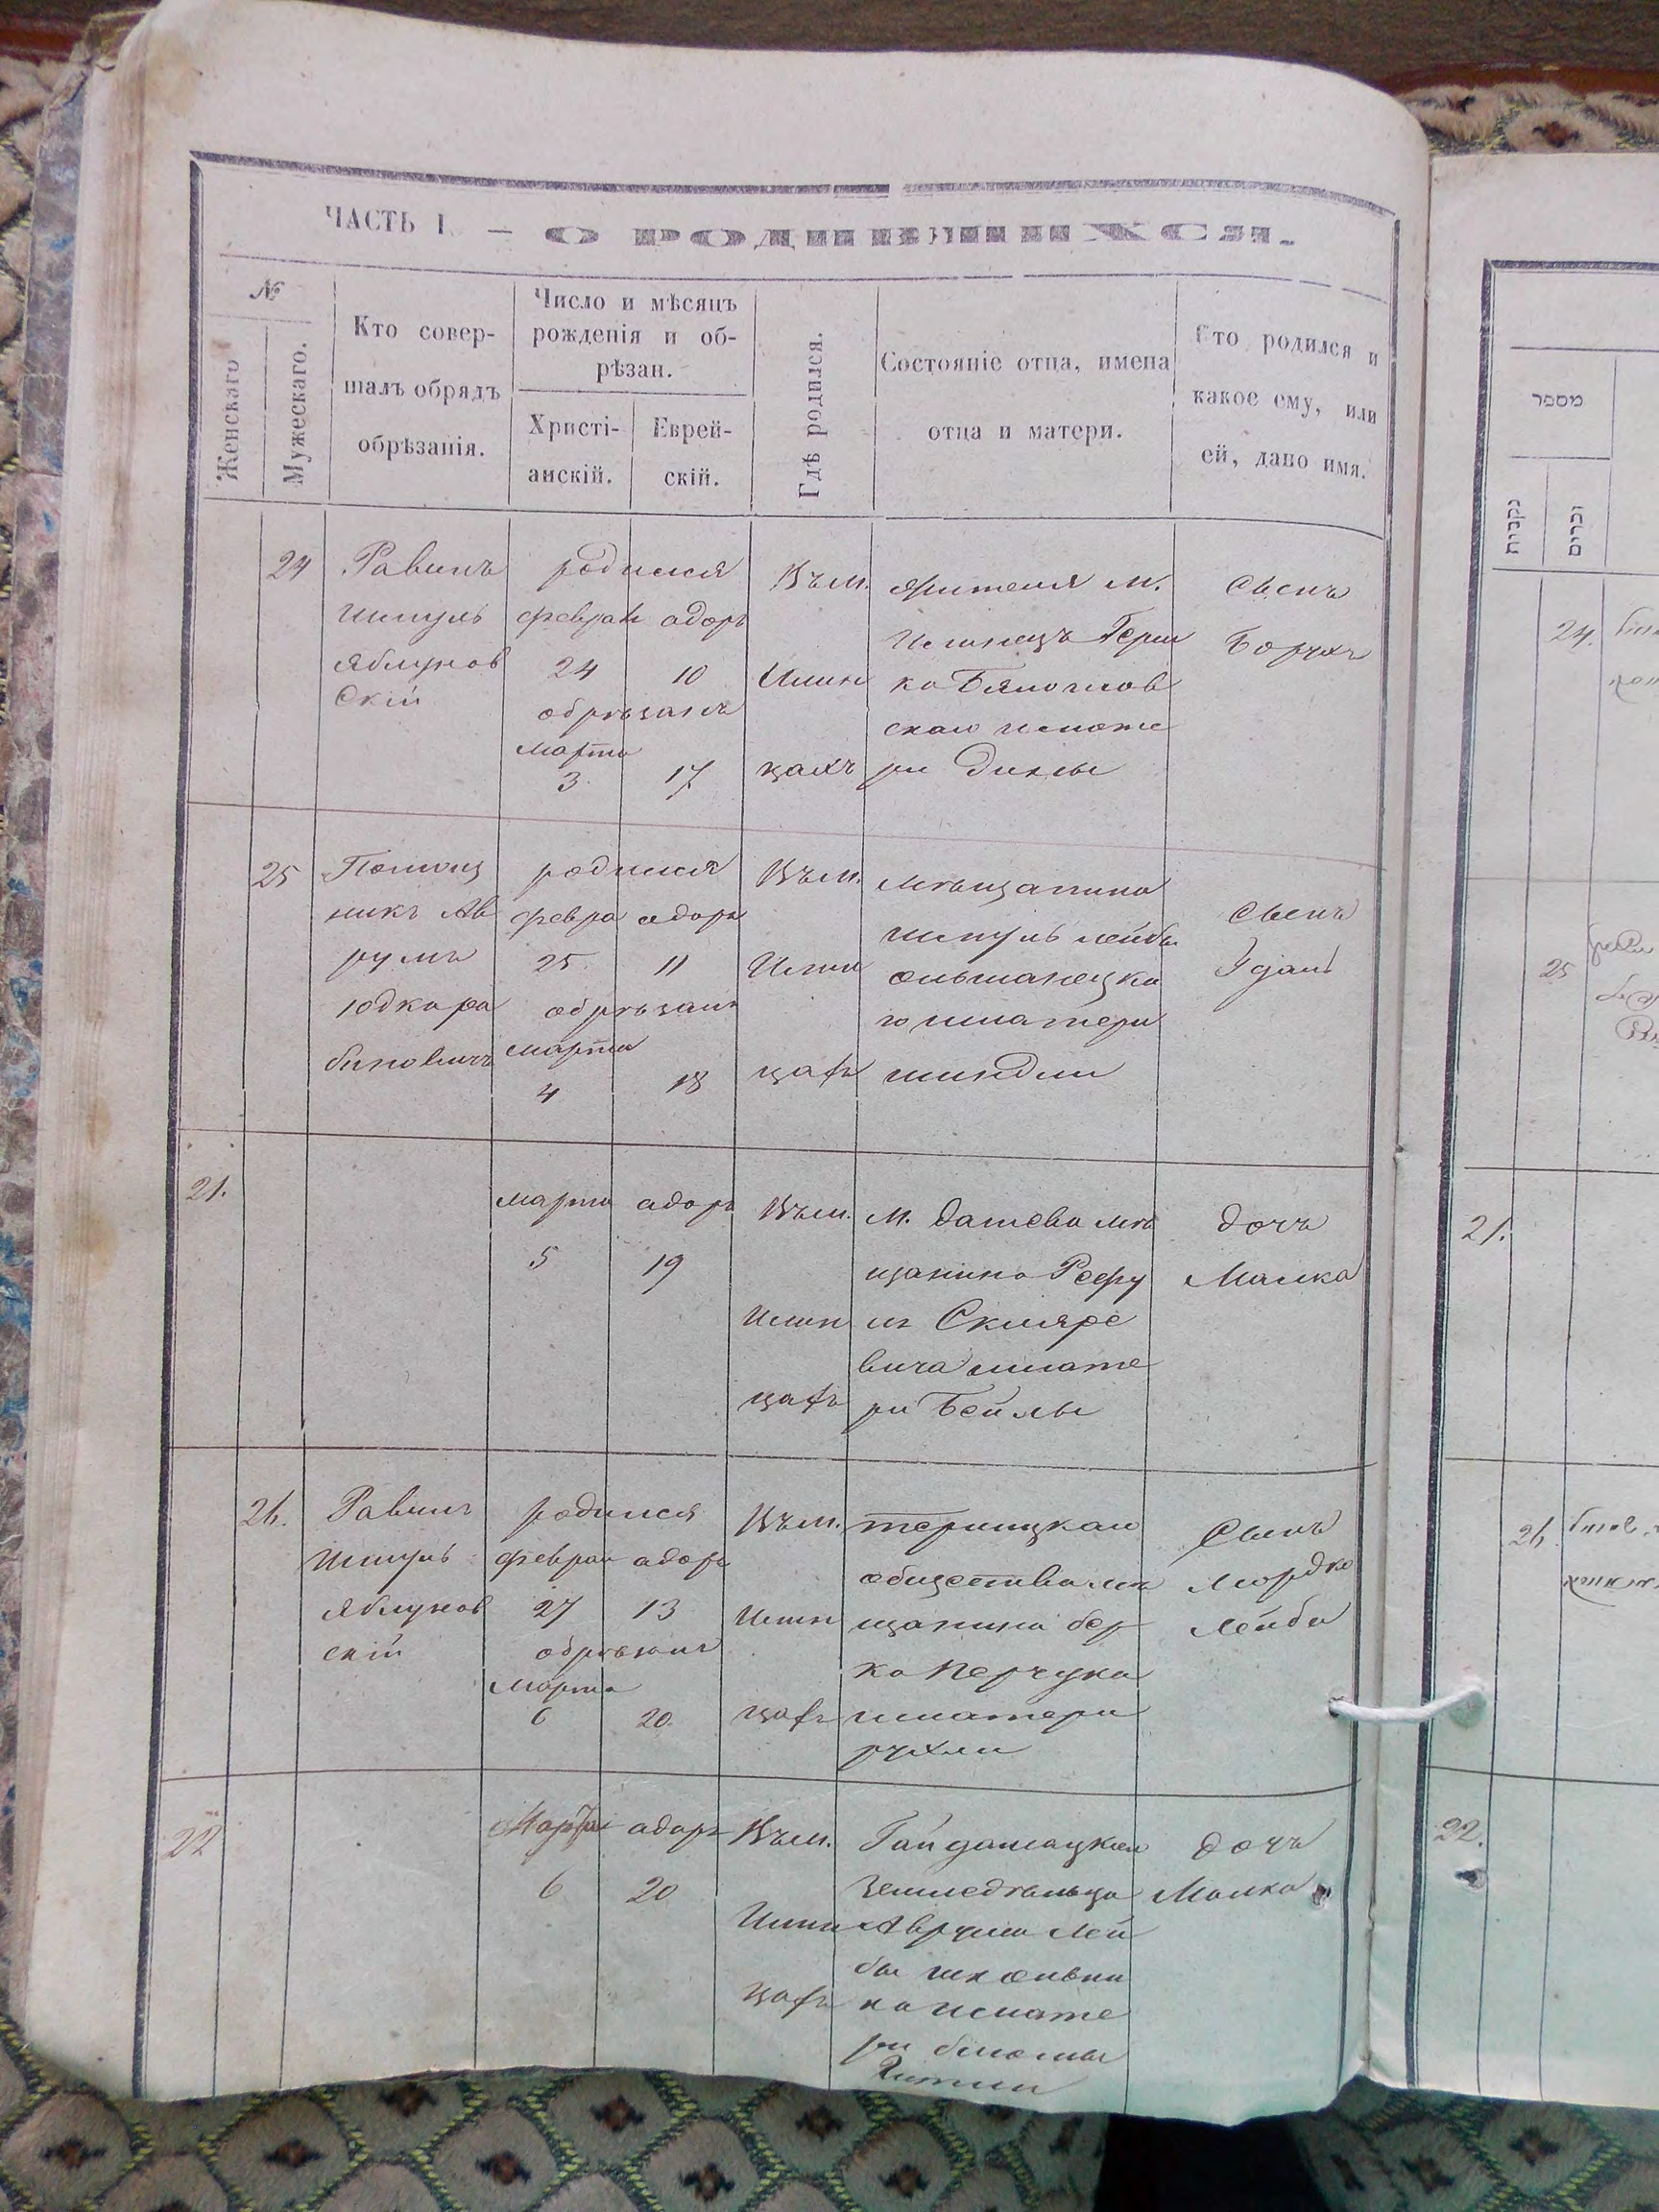 ЧАСТЬ I. — О РОДИВШИХСЯ.
№
Женскаго
Мужескаго.
Кто совер-
шалъ обрядъ
обрѣзанія.
Число и мѣсяцъ
рожденія и об-
рѣзан.
Христі-
анскій.
Еврей-
скій.
Гдѣ родился.
Состояніе отца, имена
отца и матери.
Кто родился и
какое ему, или
ей, дано имя.
24
Равинъ
Шмуль
Яблунов
скій
родился
феврал адоръ
24 10
обрѣзанъ
марта
3 17
Въ м.
Илин
цахъ
жителя м.
Илинецъ Герш
ка
скаго и мате
ри
сынъ
Борухъ
25
Помощ
никъ Ав
румъ
Юдка ра
биновичъ
родился
февра адоръ
25 11
обрѣзанъ
марта
4 18
Въ м.
Илин
цахъ
мѣщанина
Шмуль лейбы
ольшанецка
го и матери
шиндли
сынъ
21.
марта адоръ
5 19
Въ м.
Илин
цахъ
м. Дашева мѣ
щанина
Скляре
вича и мате
ри Бейлы
дочь
Малка
26.
Равинъ
Шмуль
Яблунов
скій
родился
феврал адоръ
27 13
обрѣзанъ
марта
6 20
Въ м.
Илин
цахъ
общества мѣ
щанина бер
ка Перчука
и матери
рухли
сынъ
Мордко
Лейба
22
Марта адоръ
6 20
Въ м.
Илин
цахъ
земледѣльца
Аврума Лей
бы школьни
ка и мате
ри
дочь
Малка
מספר
נקבות
זכרים
24.
25
21.
26
22.